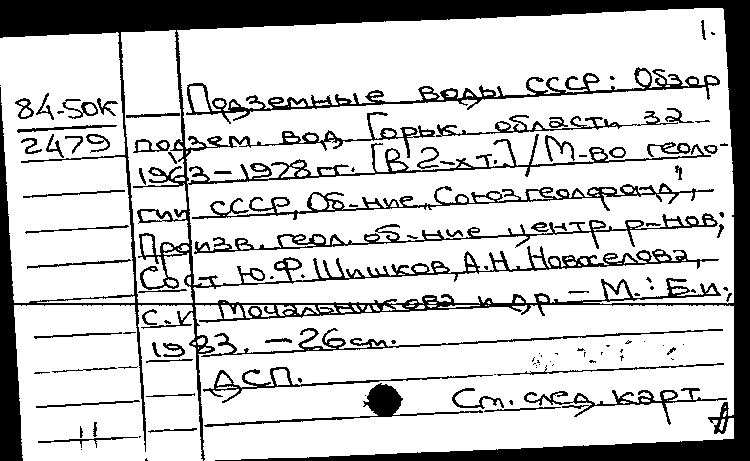 1.
84-50К
2479
Подземные воды СССР: Обзор
подзем. вод Горьк. области за
1963-1978 гг. [В 2-х т.] / М-во геоло-
гии СССР, Об-ние „Союзгеолфонд",
Произв. геол. об-ние центр. р-нов;
Сост. Ю.Ф. Шишков, А.Н. Новоселова,
С.И. Мочальникова и др. - М.: Б.и.,
1983. - 26 см.
ДСП.
См. след. карт.
11